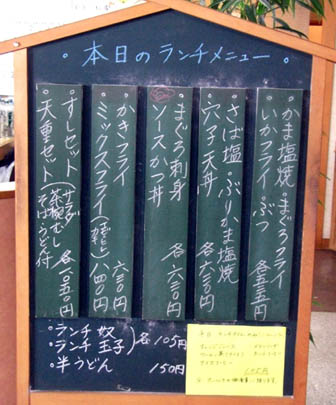 本日のランチメニュー
かま塩焼・まぐろフライ
いかフライ・ぶつ 各五五五円
さば塩・ぶりかま塩焼
穴子天丼 各六三〇円
まぐろ刺身
ソースかつ丼 各六三〇円
かきフライ 六三〇円
ミックスフライ 八四〇円
すしセット(サラダ 茶椀むし
天重セット そばうどん付 各一〇五〇円
ランチ 奴
ランチ 玉子 各105円
半うどん 150円
105円